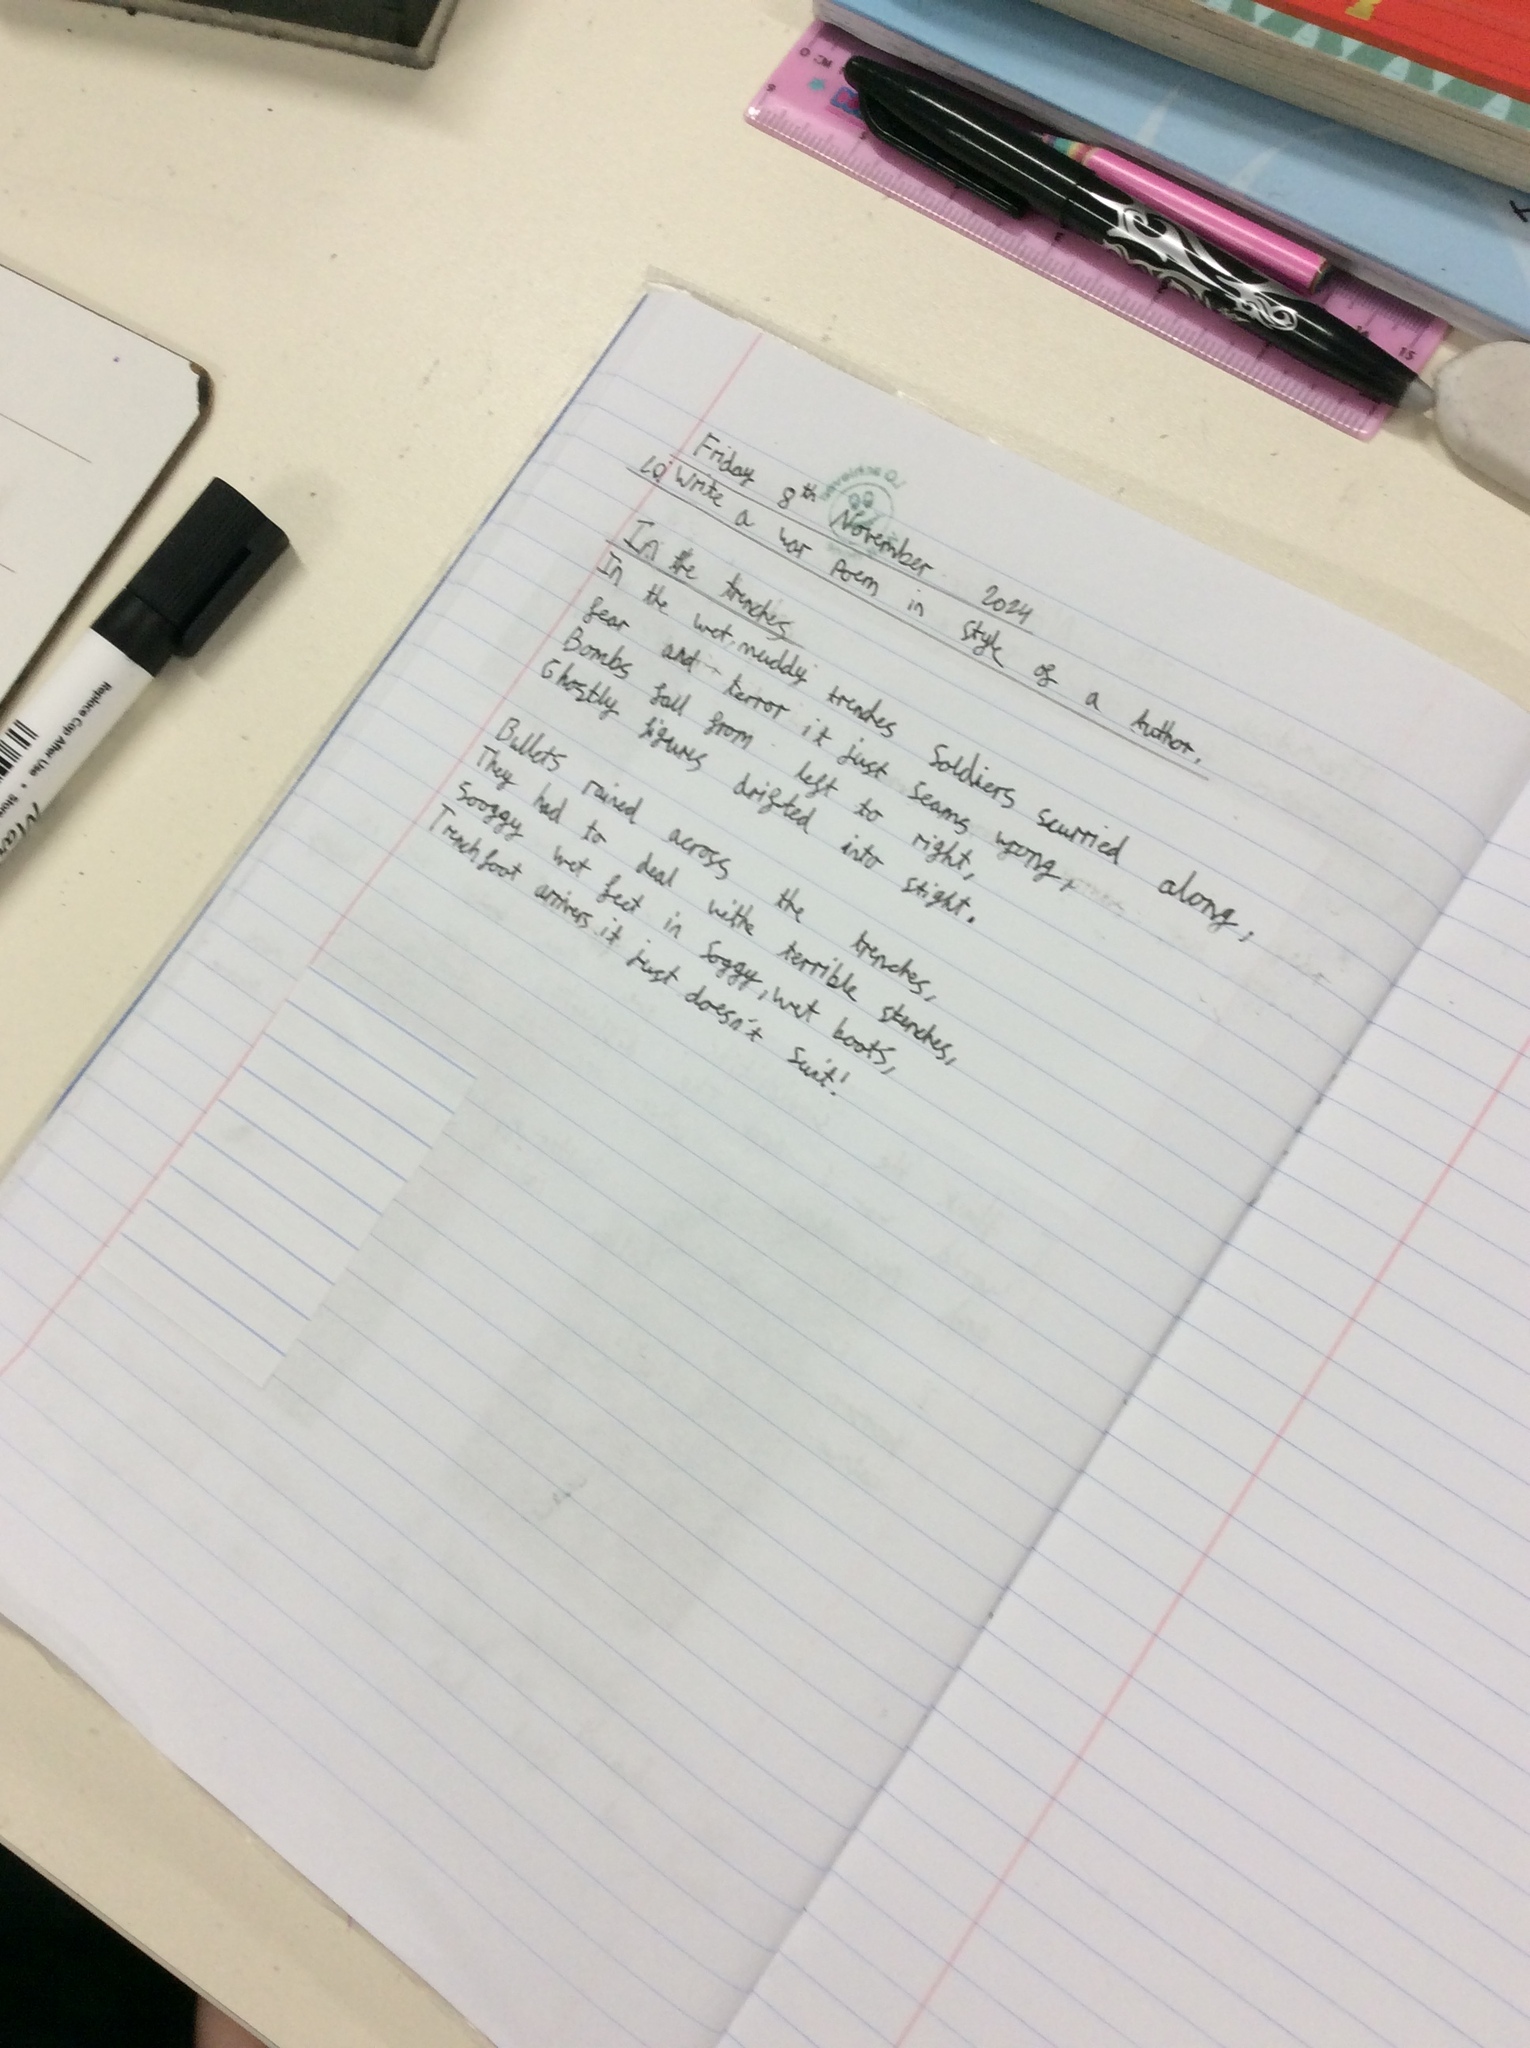 Friday 8th November 2024
LO Write a war Poem in style of a Author.
In the trenches
In the wet, muddy trenches Soldiers scurried along,
fear and terror it just seams wrong,
Bombs fall from left to right,
Ghostly figures drifted into stight.
Bullets rained across the trenches,
They had to deal withe terrible stenches,
Sooggy wet feet in Soggy, wet boots,
Trenchfoot arrivers it just doesn't suit!
LO achieved
Replace Cap After Use